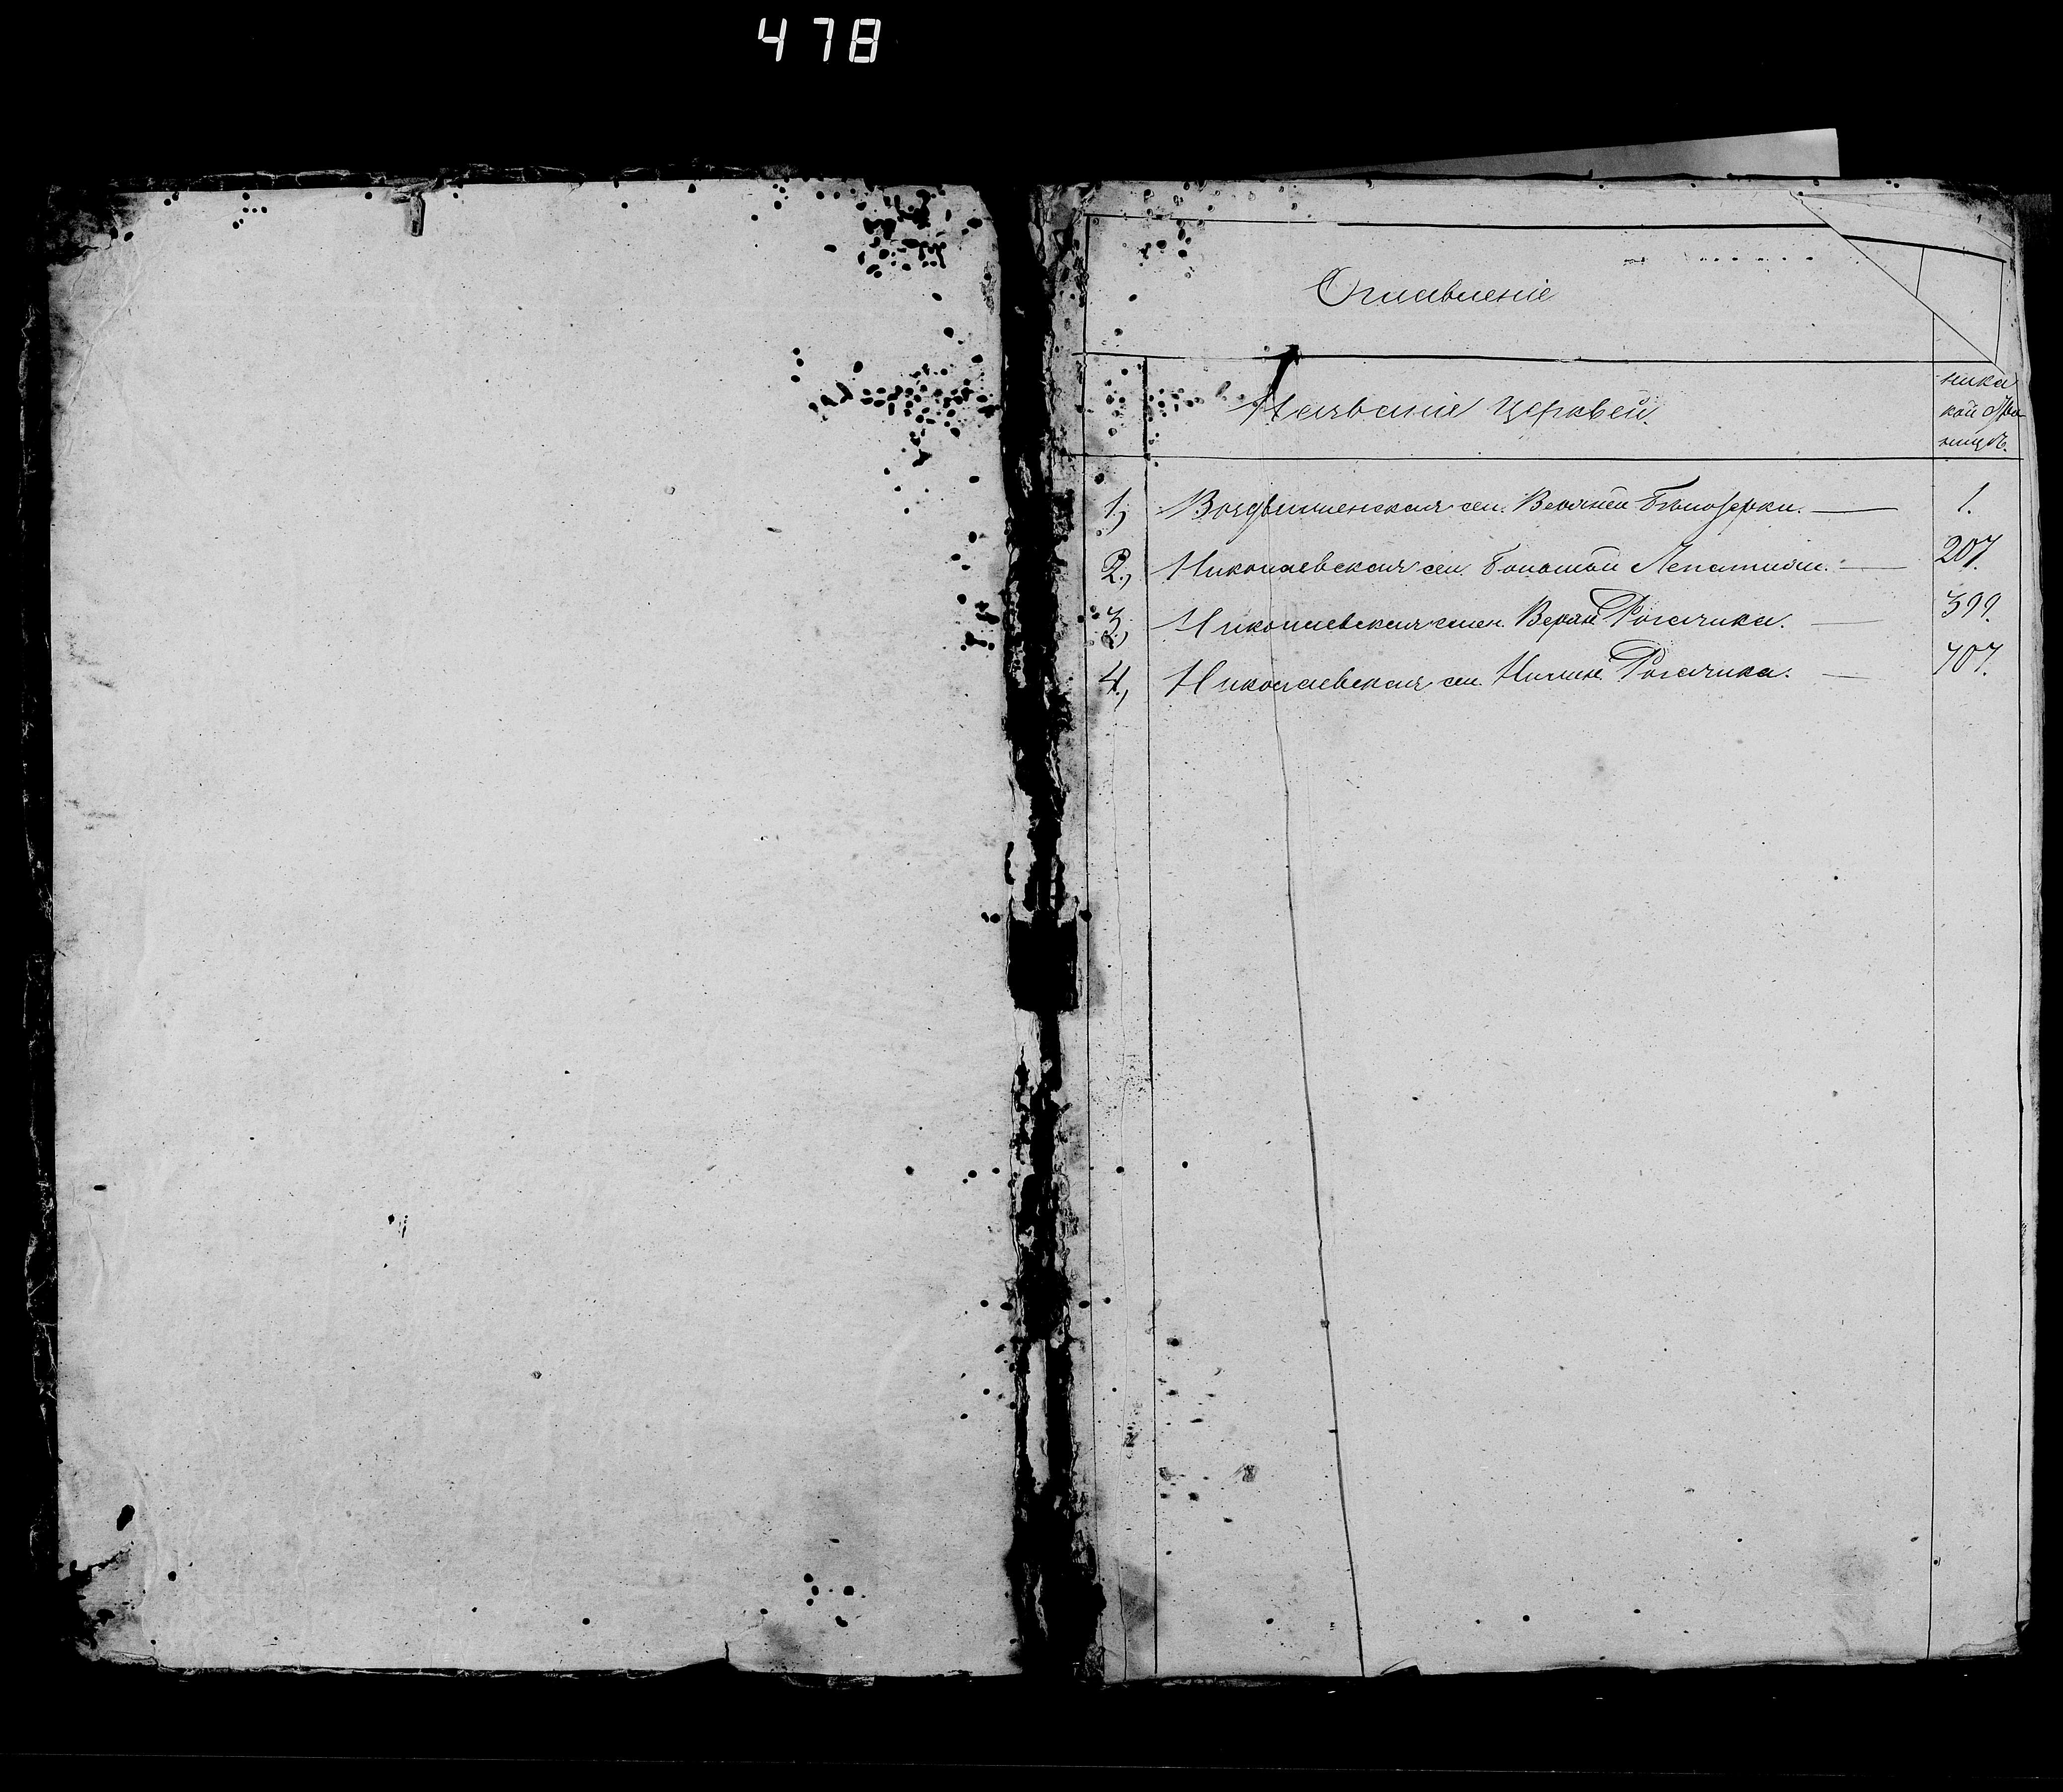 478
Оглавленіе
Названіе церквей.
кой Стра
ницѣ.
1, Воздвиженская сел. Верхней Бѣлозерки. — 1.
2., Николаевская сел. Большой Лепатихи. — 207.
3, Николаевская селен. Верхн. Рогачика. — 399.
4, Николаевская сел. Нижн. Рогачика. — 707.